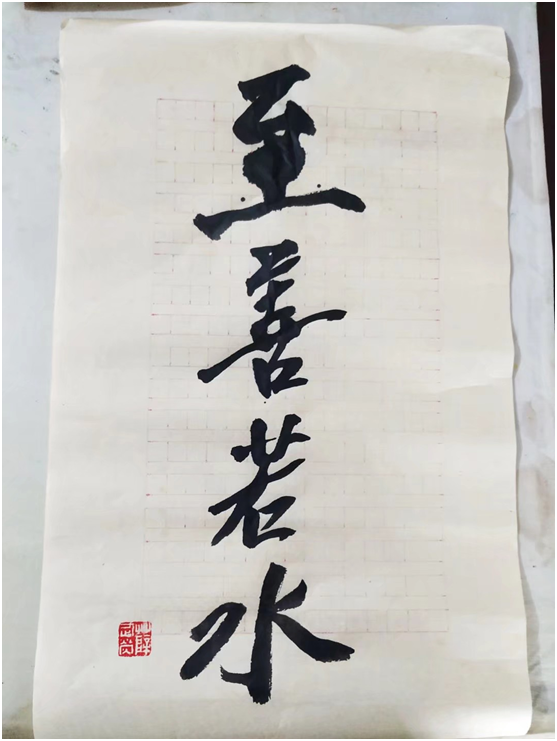 至善若水